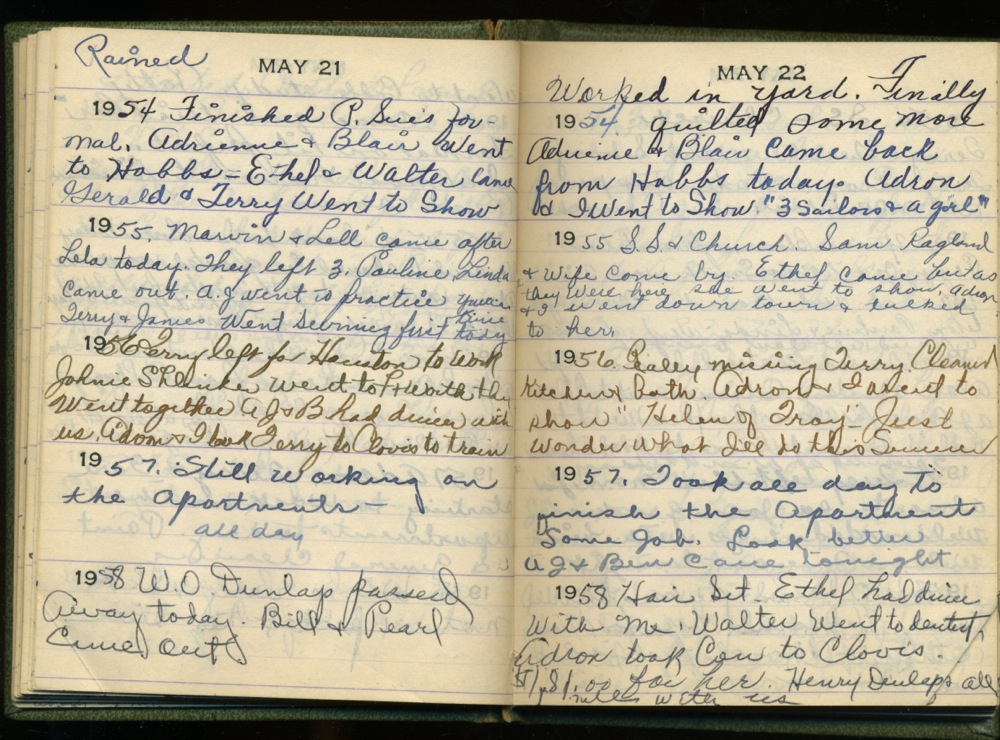 Rained
MAY 21
1954 Finished P. Sue's for-
mal. Adrienne & Blair Went
to Hobbs - Ethel & Walter Came
Gerald & Terry Went to Show
1955. Marvin & Lell came after
Lela today. They left 3. Pauline, Linda
came out. A.J. went to practice
Terry & James Went Swimming first time today
1956 Terry left for Houston to work
Johnie Shlenker went to Ft Worth they
Went together AJ & B had dinner with
us. Adron & I took Terry to Clovis to train
1957. Still working on
the apartments
all day
1958 W.O. Dunlap passed
Away today. Bill & Pearl
Came Out
MAY 22
Worked in yard. Finally
1954. quilted some more
Adrienne & Blair came back
from Hobbs today. Adron
& I Went to Show. "3 Sailors & a girl"
1955 S.S. & Church. Sam Ragland
& Wife come by. Ethel came but as
they were here she went to show. Adron
& I went down town & talked
to her.
1956. Really missing Terry. Cleaned
Kitchen & bath. Adron & I went to
show "Helen of Troy" Just
wonder what I'll do this Summer
1957. Took all day to
finish the apartment
Some Job. Look better
AJ & Ben Came tonight
1958 Hair Set. Ethel had dinner
With Me. Walter Went to dentist
Adron took Cow to Clovis.
for her. Henry Dunlaps all
with us